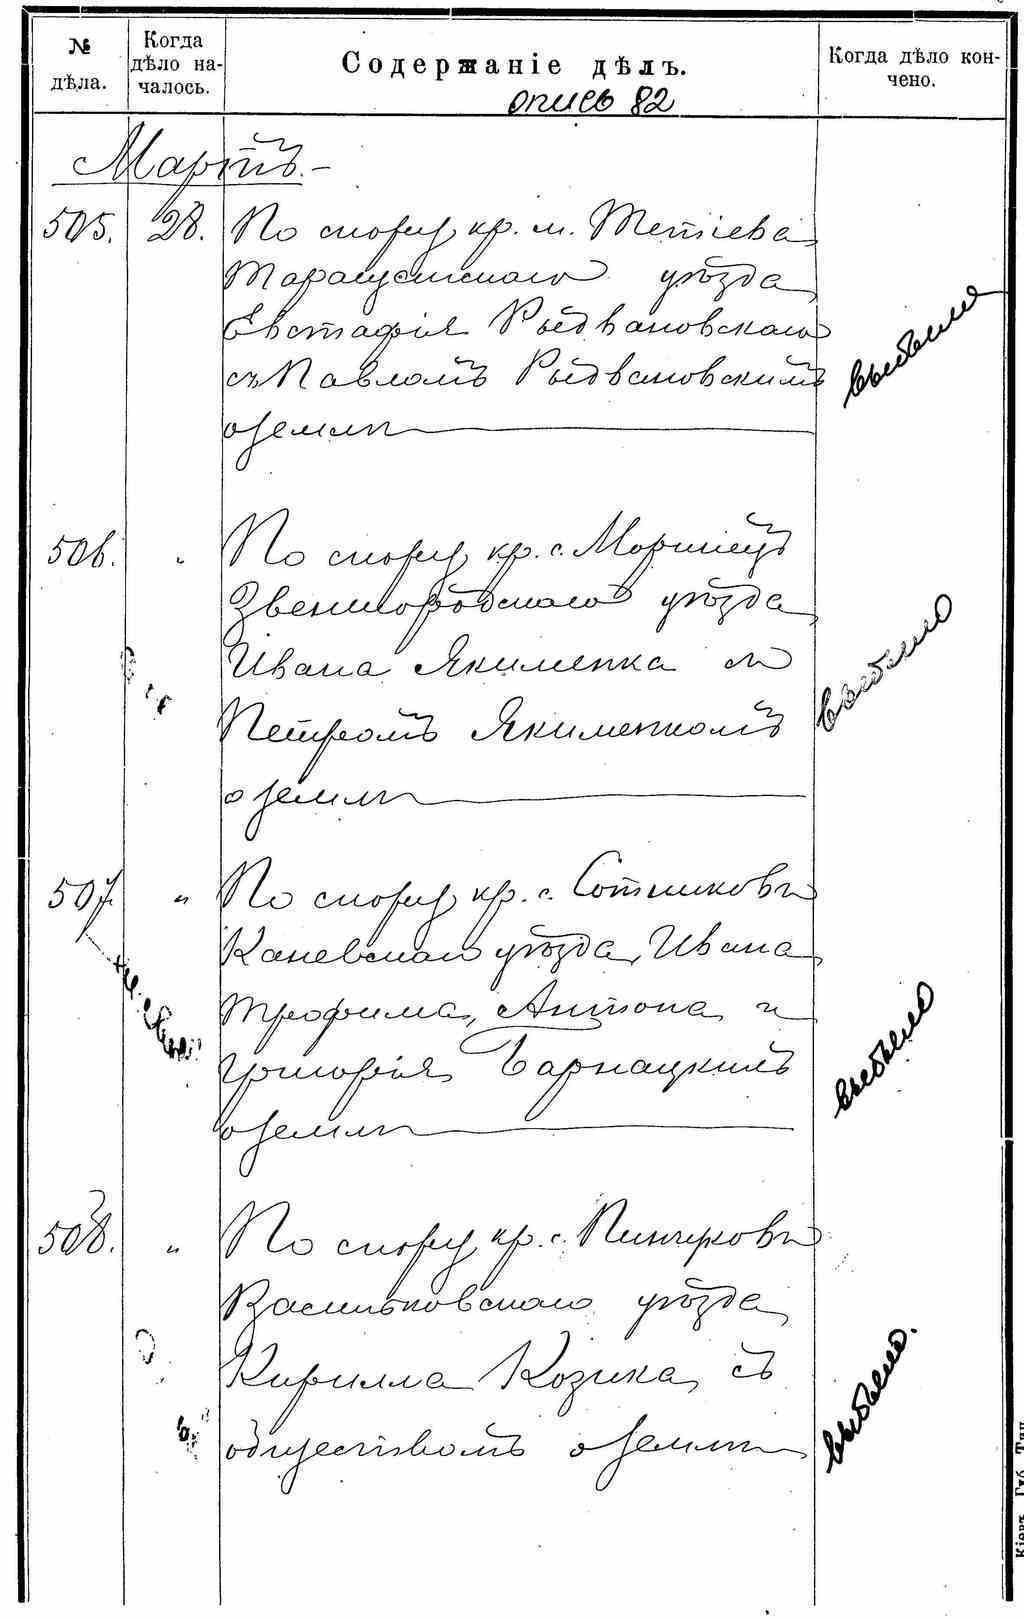 № дѣла.
Когда дѣло началось.
Содержаніе дѣлъ.
Когда дѣло кончено.
опись 82
Мартъ.
505. 28. По спору кр. м. Тетіева
Таращанскаго уѣзда
Евстафія Рыдвановскаго
съ Павломъ Рыдвановскимъ
о землѣ
выбыло
506. " По спору кр. с. Моринецъ
Звенигородскаго уѣзда
Ивана Якименка съ
Петромъ Якименкомъ
о землѣ
выбыло
507. " По спору кр. с. Сотниковъ
Каневскаго уѣзда, Ивана
Трофима, Антона и
Григорія Барнацкихъ
о землѣ
выбыло
508. " По спору кр. с. Пинчуковъ
Васильковскаго уѣзда
Кирилла Козика съ
обществомъ о землѣ
выбыло.
Кіевъ. Губ. Тип.